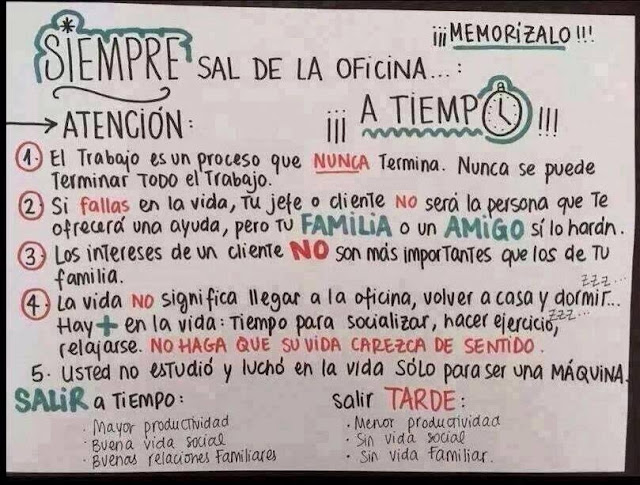 ¡¡¡MEMORÍZALO!!!
SIEMPRE SAL DE LA OFICINA...:
¡¡¡ A TIEMPO !!!
→ ATENCIÓN:
1. El Trabajo es un proceso que NUNCA Termina. Nunca se puede
Terminar TODO el Trabajo.
2. Si fallas en la vida, Tu jefe o cliente NO será la persona que Te
ofrecerá una ayuda, pero Tu FAMILIA o un AMIGO sí lo harán.
3. Los intereses de un cliente NO son más importantes que los de Tu
familia.
zzz...
4. La vida NO significa llegar a la oficina, volver a casa y dormir...
zzz...
Hay + en la vida: Tiempo para socializar, hacer ejercicio,
relajarse. NO HAGA QUE SU VIDA CAREZCA DE SENTIDO.
5. USTED NO ESTUDIÓ y LUCHÓ en LA VIDA SÓLO PARA SER UNA MÁQUINA.
SALIR a TIEMPO:
· Mayor productividad
· Buena vida social
· Buenas relaciones Familiares
Salir TARDE:
· Menor productividad
· Sin vida social
· Sin vida Familiar.